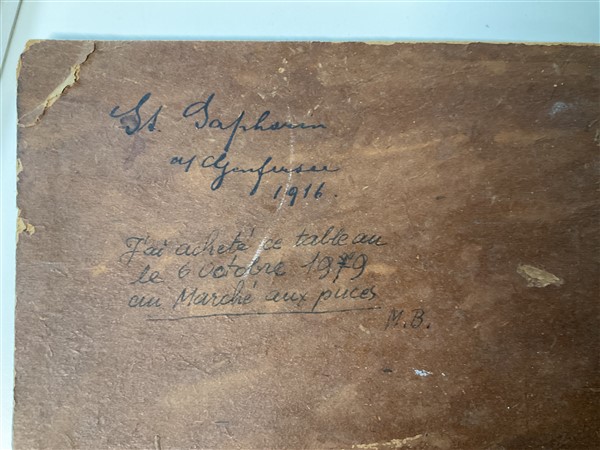 St. Saphorin
a/Genfersee
1916.
J'ai acheté ce tableau
le 6 Octobre 1979
au Marché aux puces
M.B.